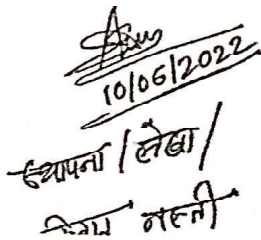 10/06/2022
स्थापना / लेखा /
नस्ती